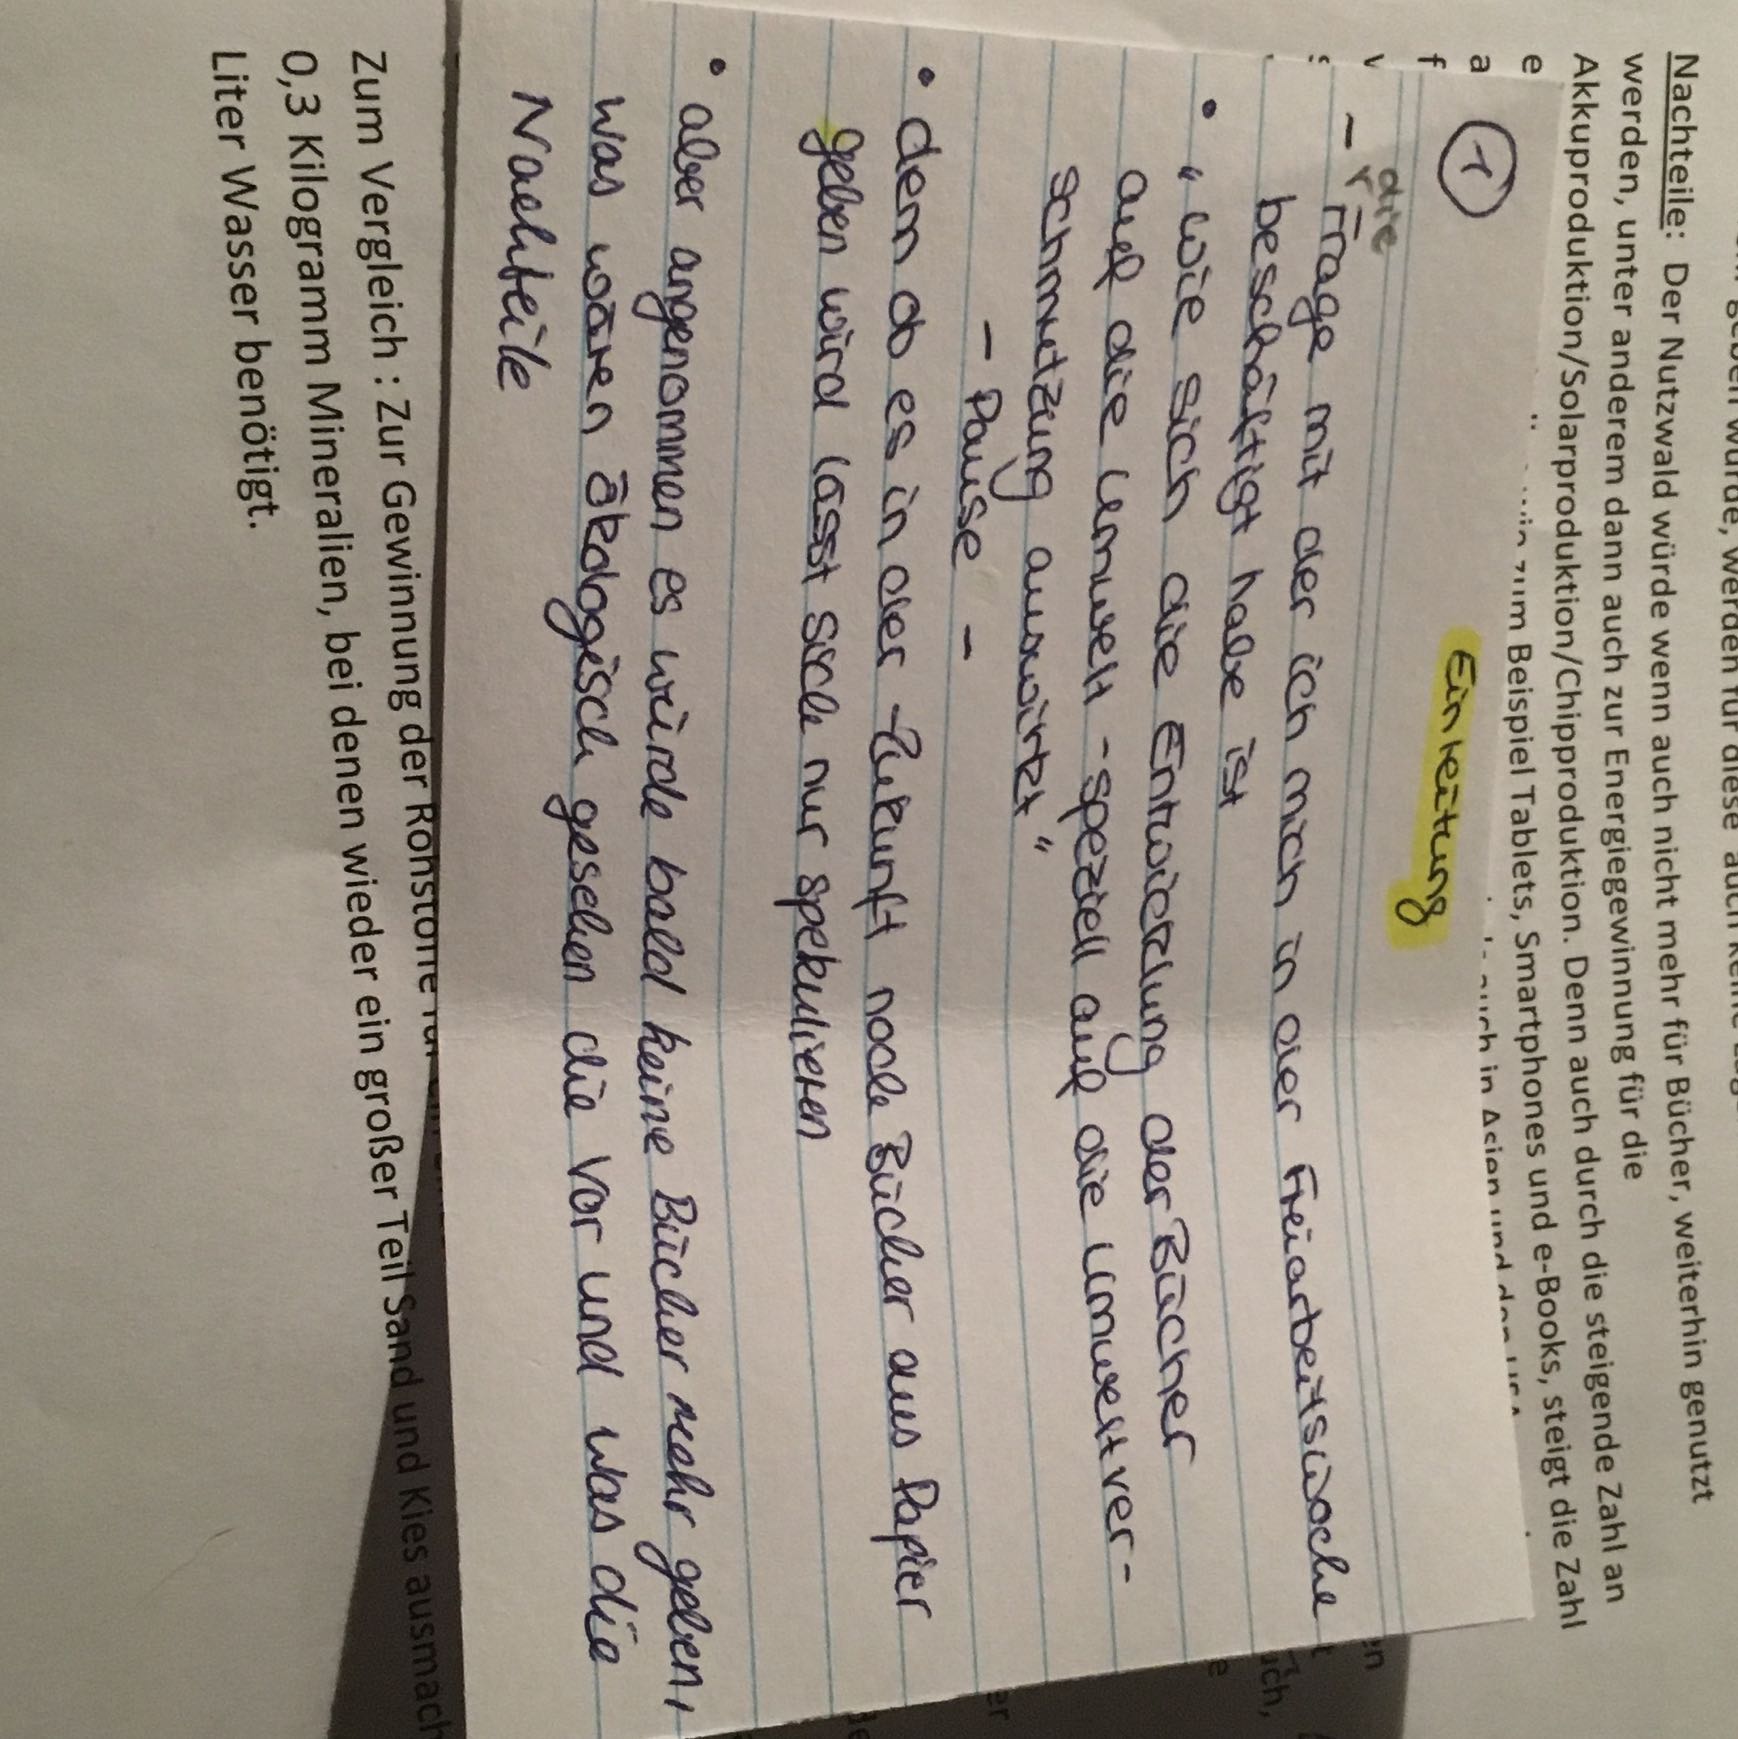 geben würde, werden für diese auch keine
Nachteile: Der Nutzwald würde wenn auch nicht mehr für Bücher, weiterhin genutzt
werden, unter anderem dann auch zur Energiegewinnung für die
Akkuproduktion/Solarproduktion/Chipproduktion. Denn auch durch die steigende Zahl an
zum Beispiel Tablets, Smartphones und e-Books, steigt die Zahl
auch in Asien und den USA
① Einleitung
die
- Frage mit der ich mich in der Freiarbeitswoche
beschäftigt habe ist
• "wie sich die Entwicklung der Bücher
auf die Umwelt - speziell auf die Umweltver-
schmutzung auswirkt"
- Pause -
• denn ob es in der Zukunft noch Bücher aus Papier
geben wird lässt sich nur spekulieren
• aber angenommen es würde bald keine Bücher mehr geben,
was wären ökologisch gesehen die Vor und was die
Nachteile
Zum Vergleich : Zur Gewinnung der Rohstoffe für
0,3 Kilogramm Mineralien, bei denen wieder ein großer Teil Sand und Kies ausmach
Liter Wasser benötigt.